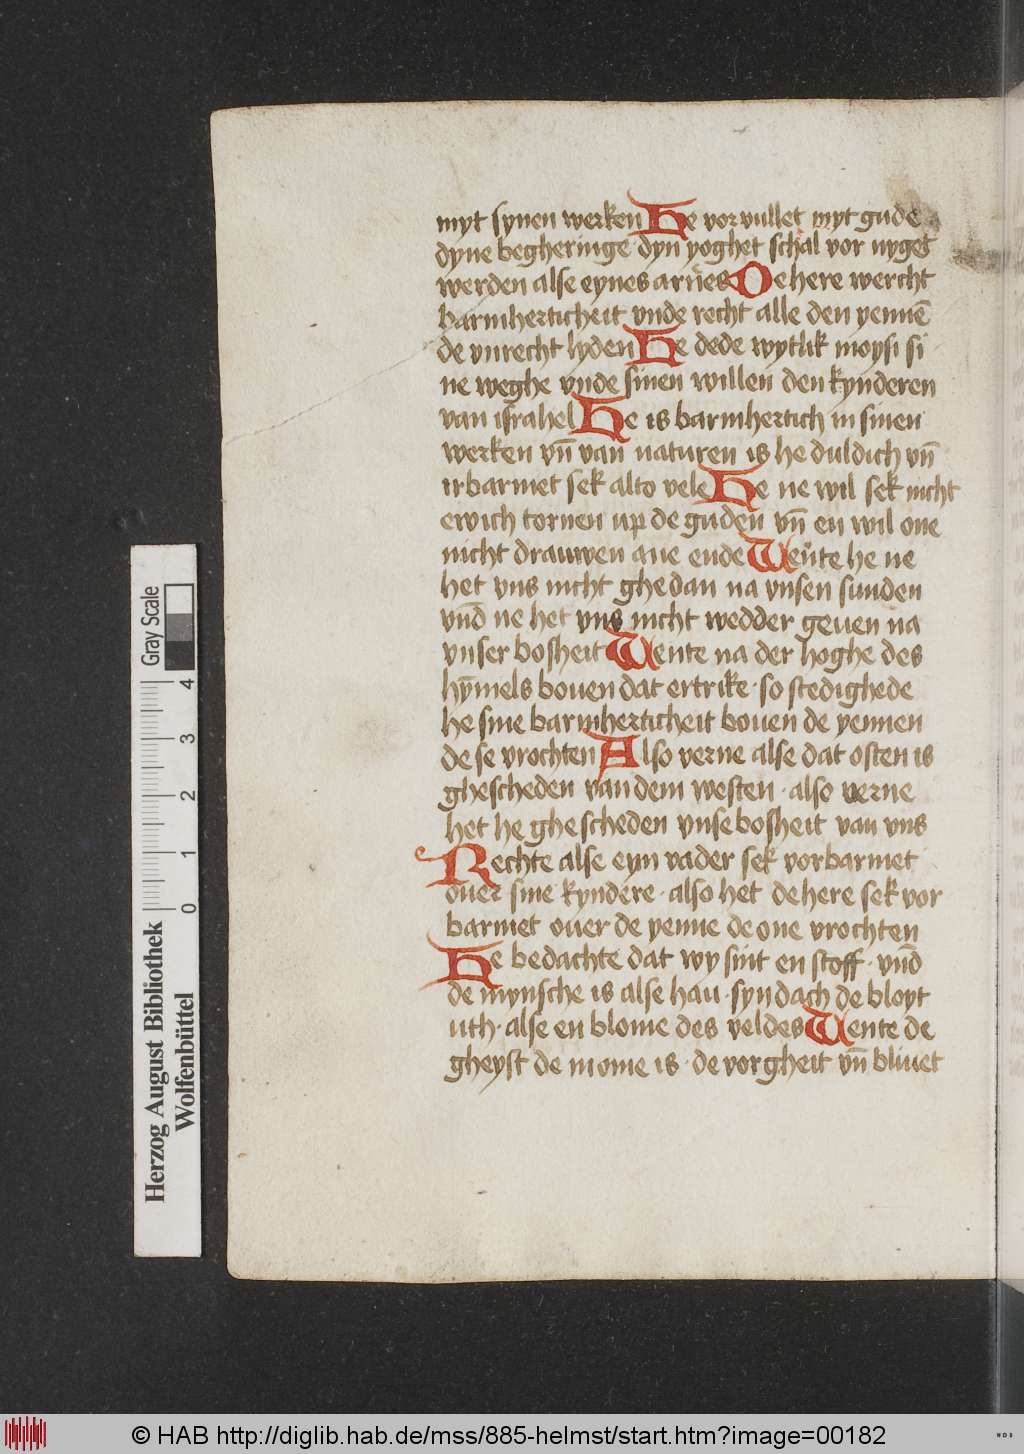 myt synen werken He vorvullet myt gude
dyne begheringe dyn yoghet schal vor nyget
werden alse eynes arnes De here wercht
barmherticheit vnde recht alle den yennē
de vnrecht lyden He dede wytlik moysi si
ne weghe vnde sinen willen den kynderen
van israhel He is barmhertich in sinen
werken vn̄ van naturen is he duldich vn̄
irbarmet sek alto vele He ne wil sek nicht
ewich tornen up de guden vn̄ en wil one
nicht drauwen ane ende Wente he ne
het vns nicht ghedan na vnsen sunden
vnd̄ ne het vns nicht wedder geuen na
vnser bosheit Wente na der hoghe des
hȳmels bouen dat ertrike · so stedighede
he sine barmherticheit bouen de yennen
de se vrochten Also verne alse dat osten is
ghescheden van dem westen · also verne
het he ghescheden vnse bosheit van vns
Rechte alse eyn vader sek vorbarmet
ouer sine kyndere · also het de here sek vor
barmet ouer de yenne de one vrochten
He bedachte dat wy sint en stoff · vnd̄
de mynsche is alse hau · syn dach de bloyt
uth · alse en blome des veldes Wente de
gheyst de in ome is · de vorgheit vn̄ bliuet
Gray Scale
4
3
2
1
0
Herzog August Bibliothek
Wolfenbüttel
© HAB http://diglib.hab.de/mss/885-helmst/start.htm?image=00182
WDB